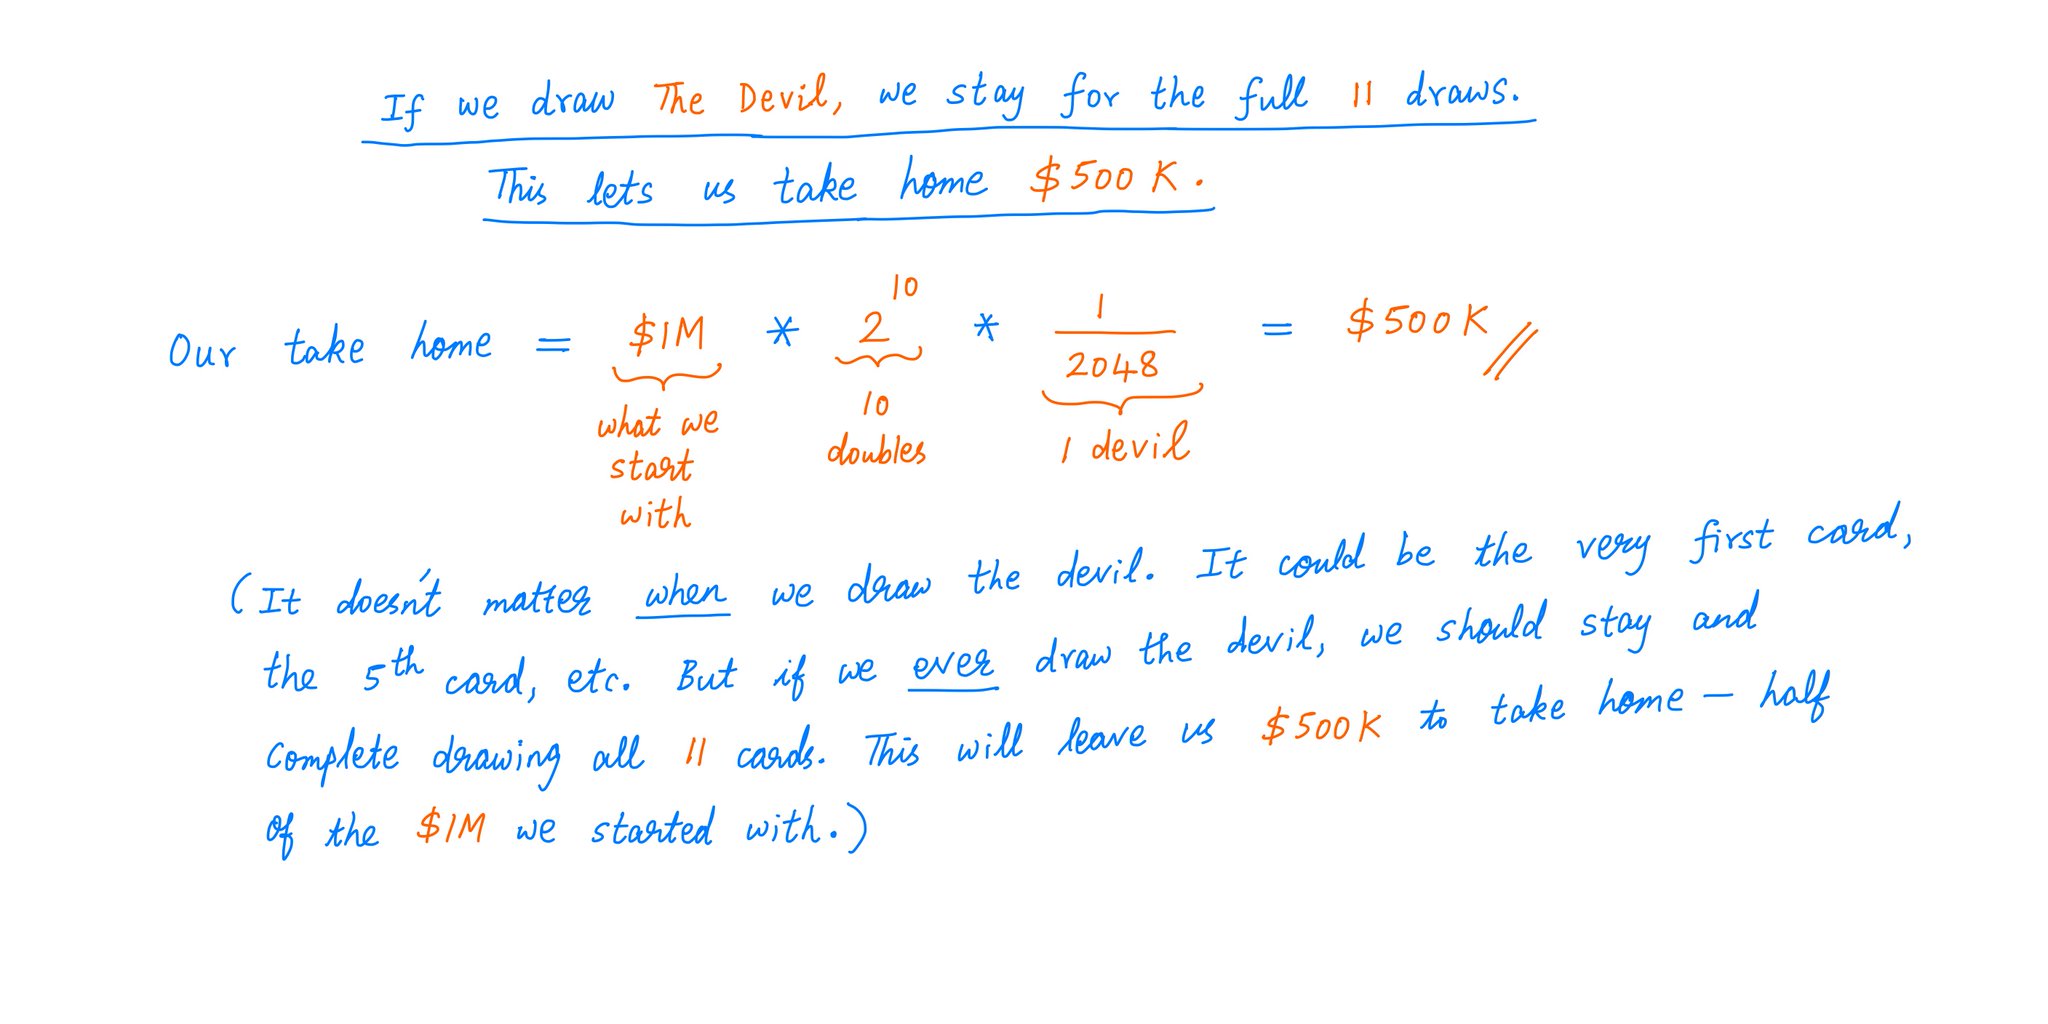 If we draw The Devil, we stay for the full 11 draws.
This lets us take home $500 K.
Our take home = $1M * 2^10 * 1/2048 = $500 K
what we start with
10 doubles
1 devil
(It doesn't matter when we draw the devil. It could be the very first card,
the 5th card, etc. But if we ever draw the devil, we should stay and
complete drawing all 11 cards. This will leave us $500K to take home — half
of the $1M we started with.)